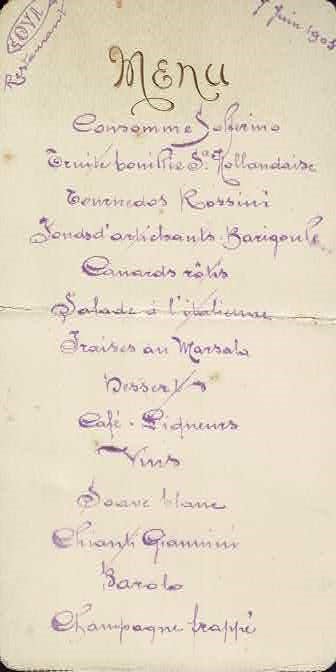 GOYA
Restaurant
7 Juin 1905
Menu
Consomme Solferino
Truite bouillie Sce Hollandaise
Tournedos Rossini
Fonds d'artichauts Barigoule
Canards rôtis
Salade à l'italienne
Fraises au Marsala
Desserts
Café - Liqueurs
Vins
Soave blanc
Chianti Giannini
Barolo
Champagne frappé